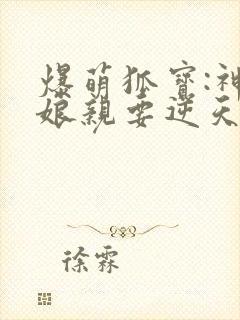 爆萌狐宝:神
娘亲要逆天
徐霖